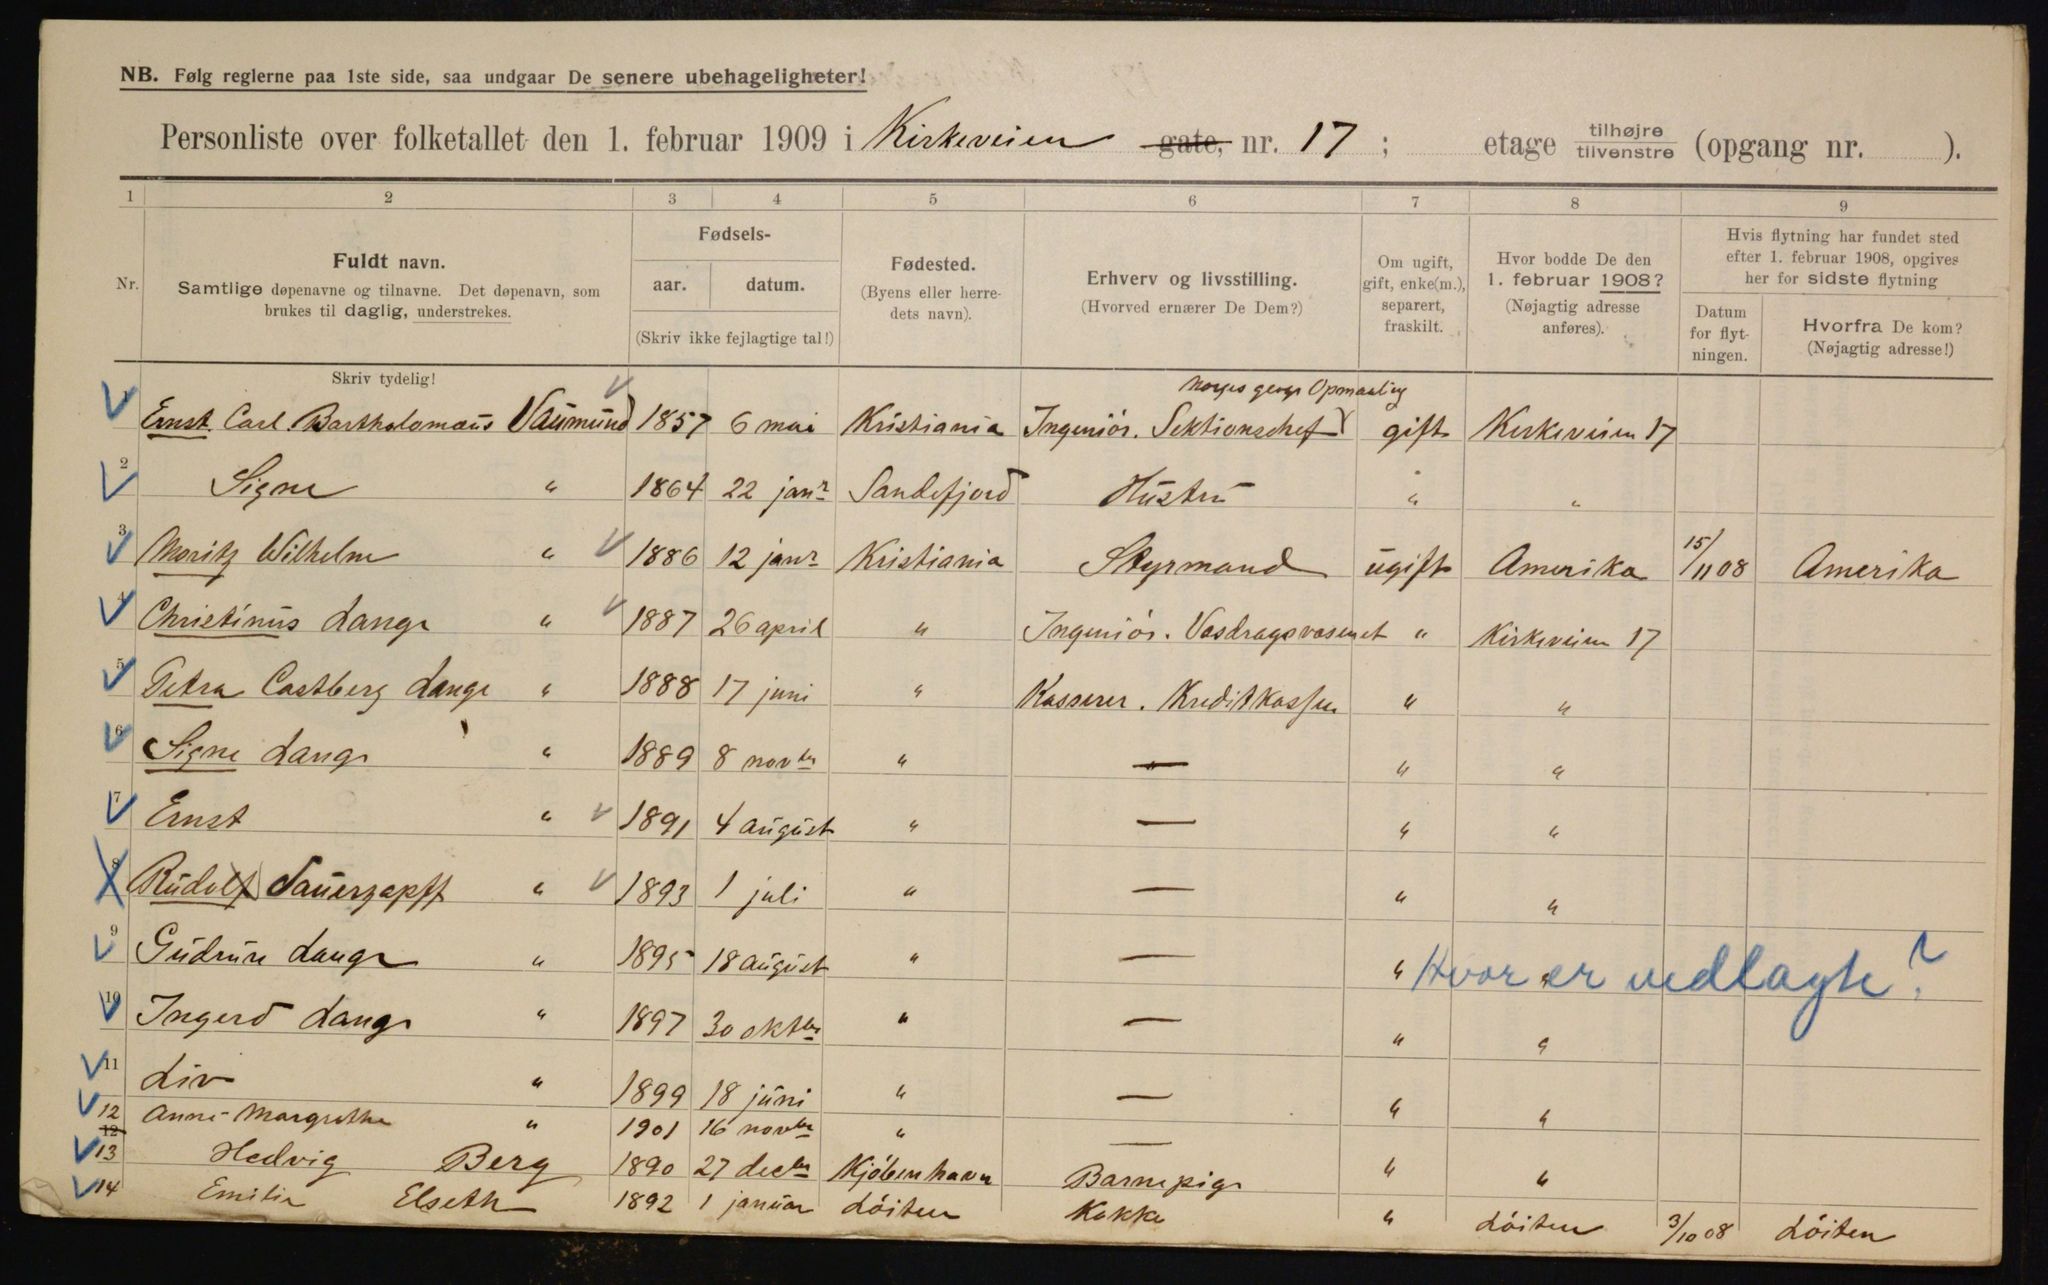 NB. Følg reglerne paa 1ste side, saa undgaar De senere ubehageligheter!
Personliste over folketallet den 1. februar 1909 i Kirkeveien gate, nr. 17 ; etage tilhøjre tilvenstre (opgang nr. ).
1 2 3 4 5 6 7 8 9
Nr.
Fuldt navn.
Samtlige døpenavne og tilnavne. Det døpenavn, som
brukes til daglig, understrekes.
Fødsels-
aar. datum.
(Skriv ikke fejlagtige tal!)
Fødested.
(Byens eller herre-
dets navn).
Erhverv og livsstilling.
(Hvorved ernærer De Dem?)
Om ugift,
gift, enke(m.),
separert,
fraskilt.
Hvor bodde De den
1. februar 1908?
(Nøjagtig adresse
anføres).
Hvis flytning har fundet sted
efter 1. februar 1908, opgives
her for sidste flytning
Datum
for flyt-
ningen.
Hvorfra De kom?
(Nøjagtig adresse!)
Skriv tydelig!
Norges geogr Opmaaling
1 Ernst Carl Bartholomæus Naumund 1857 6 mai Kristiania Ingeniör. Sektionschef gift Kirkeveien 17
2 Signe " 1864 22 janr Sandefjord Hustru " "
3 Moritz Wilhelm " 1886 12 janr Kristiania Styrmand ugift Amerika 15/11 08 Amerika
4 Christinus Lange " 1887 26 april " Ingeniör. Vasdragsvæsenet " Kirkeveien 17
5 Petra Castberg Lange " 1888 17 juni " Kasserer. Kreditkassen " "
6 Signe Lange " 1889 8 novbr " — " "
7 Ernst " 1891 4 august " — " "
8 Rudolf Sauerzapff " 1893 1 juli " — " "
9 Gudrun Lange " 1895 18 august " — " " Hvor er vedlagte?
10 Ingerd Lange " 1897 30 oktbr " — " "
11 Liv " 1899 18 juni " — " "
12 Anne-Margrethe " 1901 16 novbr " — " "
12
13 Hedvig Berg 1890 27 decbr Kjöbenhavn Barnepige " "
14 Emilie Elseth 1892 1 januar Löiten Kokke " Löiten 3/10 08 Löiten